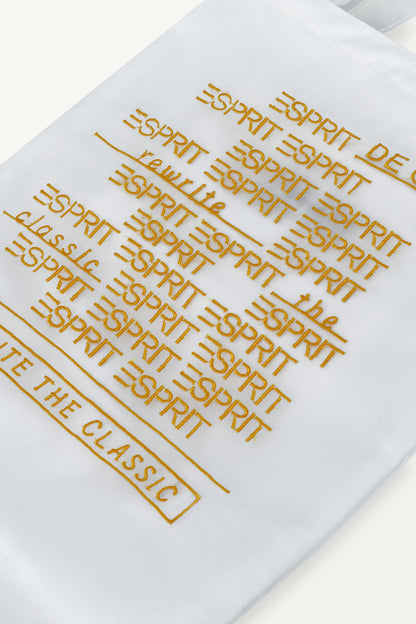 ESPRIT DE
ESPRIT ESPRIT
ESPRIT ESPRIT
ESPRIT ESPRIT ESPRIT
rewrite ESPRIT
ESPRIT ESPRIT
ESPRIT the
ESPRIT ESPRIT ESPRIT
classic ESPRIT ESPRIT
ESPRIT ESPRIT ESPRIT
ESPRIT ESPRIT
ESPRIT
THE CLASSIC